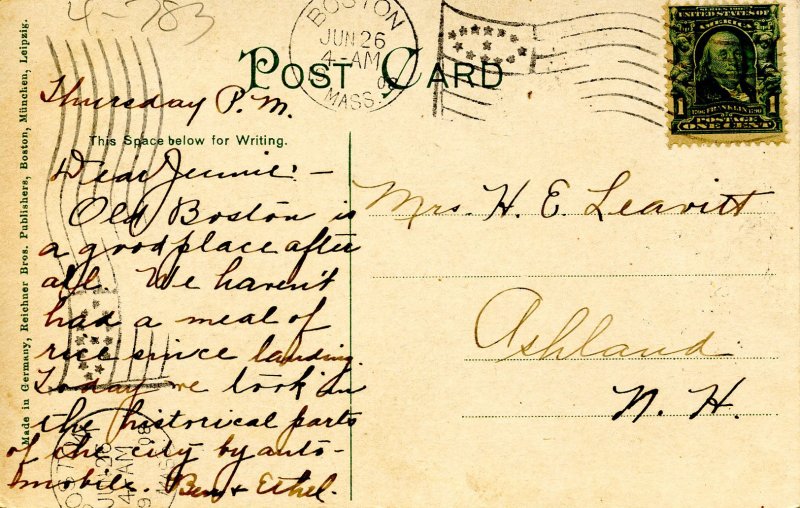 4-783
BOSTON
JUN 26
4-AM
MASS.
SERIES 1902
UNITED STATES OF AMERICA
1 FRANKLIN 1
POSTAGE
ONE CENT
POST CARD
Thursday P.M.
This Space below for Writing.
Dear Jennie:-
Old Boston is
a good place after
all. We haven't
had a meal of
rice since landing.
Today we took in
the historical parts
of the city by auto-
mobile. Ben + Ethel.
Mrs. H. E. Leavitt
Ashland
N. H.
Made in Germany, Reichner Bros. Publishers, Boston, München, Leipzig.
BOSTON
JUN 26
4-AM
MASS.